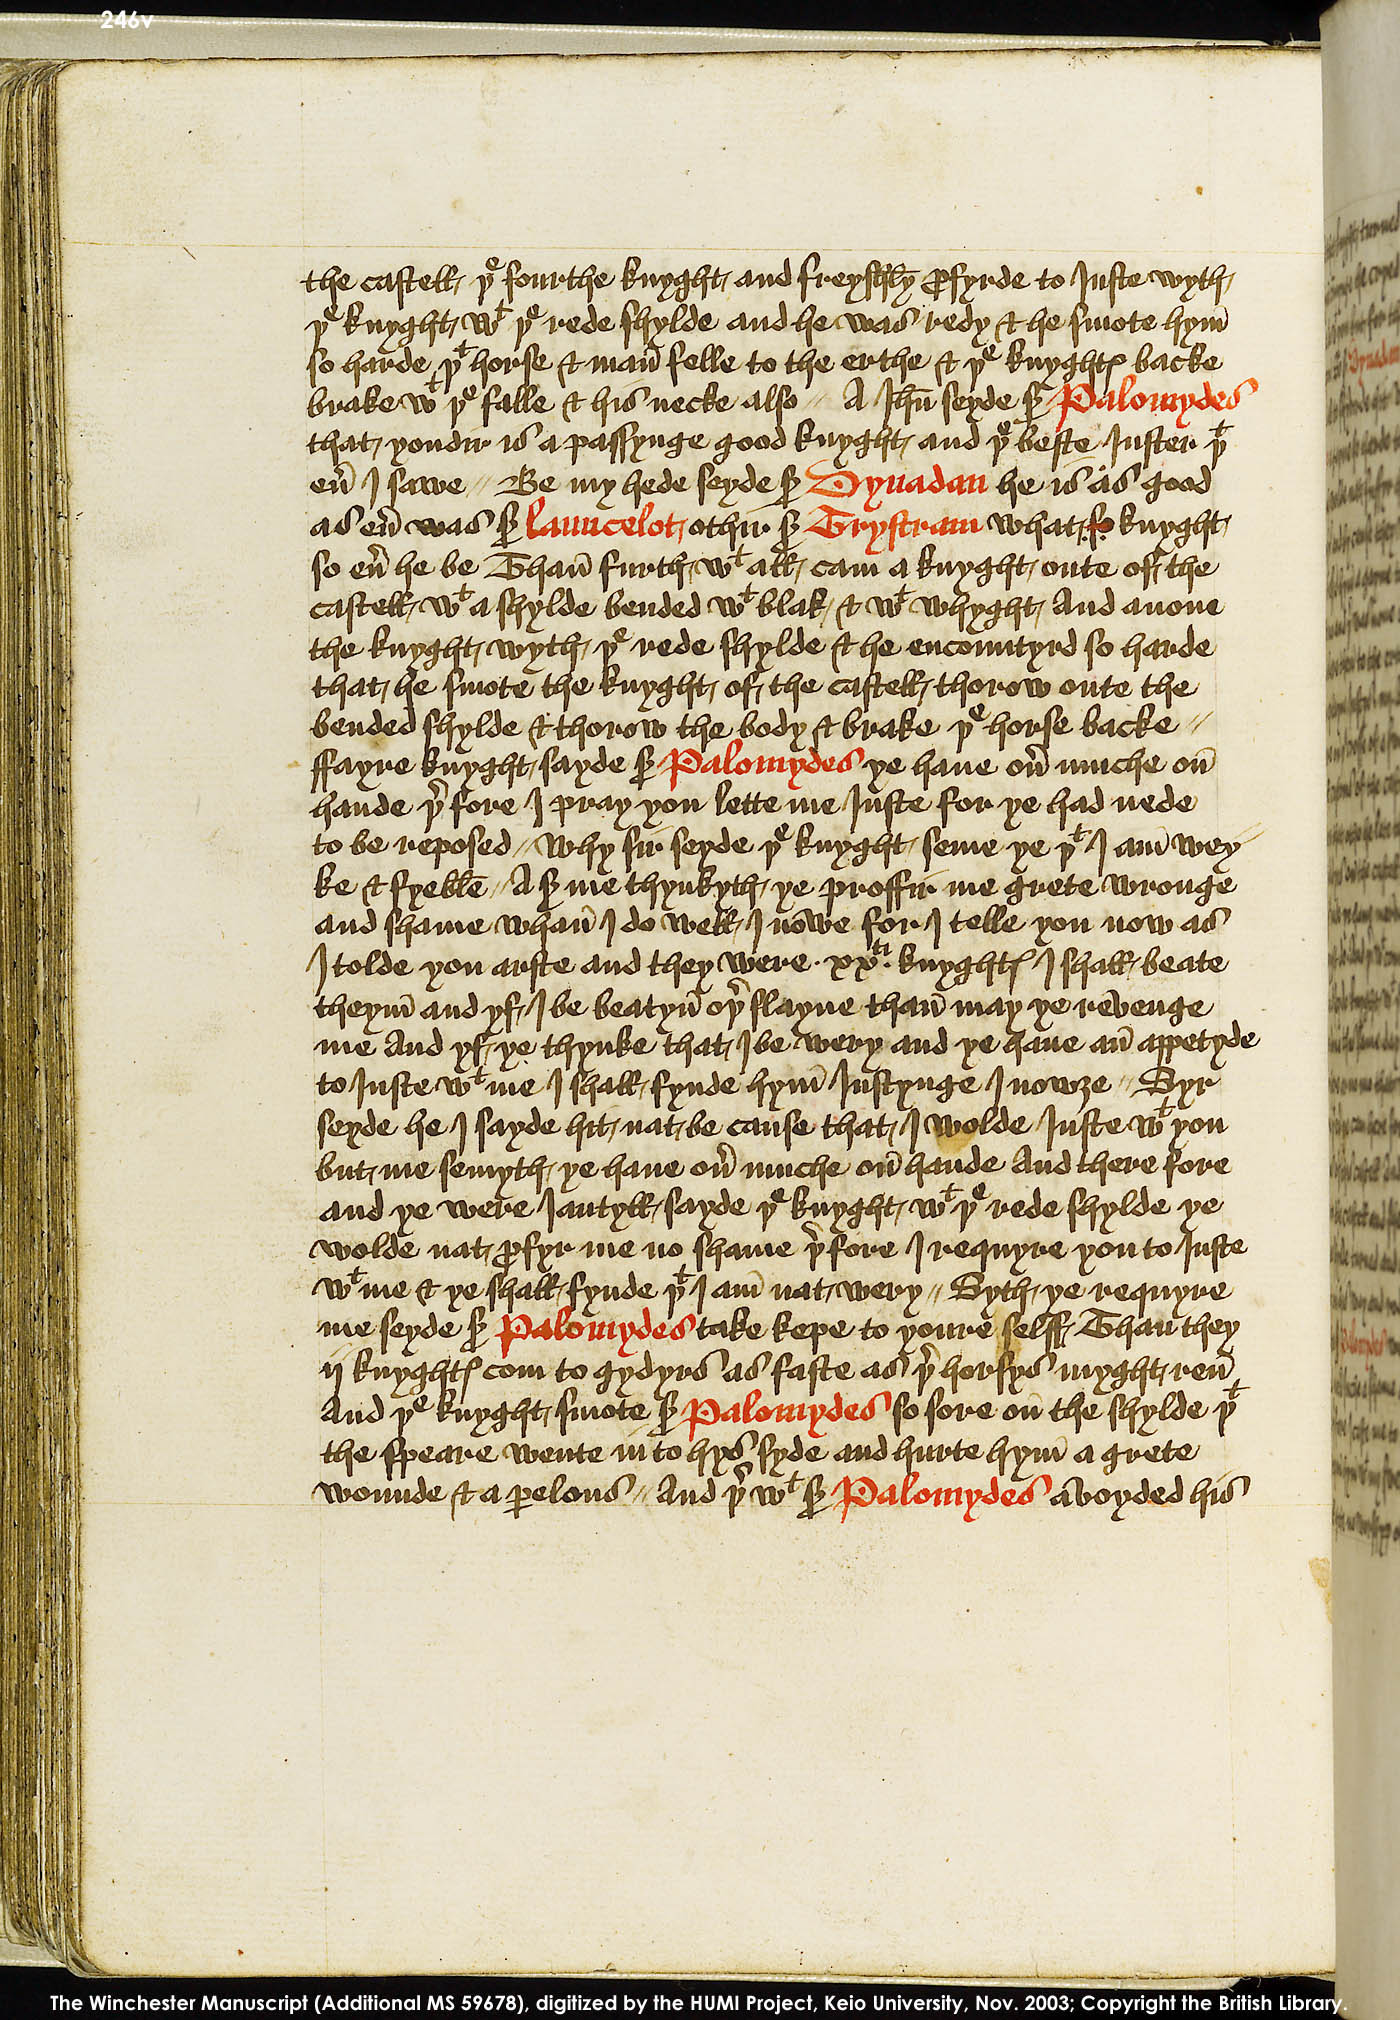 246v
the castell, þe fourthe knyght, and freyshly profyrde to Juste wyth,
þe knyght, wt þe rede shylde and he was redy & he smote hym̄
so harde þt horse & man̄ felle to the erthe & þe knyghtꝭ backe
brake wt þe falle & his necke also // A Jhū seyde sr Palomydes
that, yondir is a passynge good knyght, and þe beste Juster þt
eūr I sawe // Be my hede seyde sr Dynadan he is as good
as eūr was sr launcelot, othir sr Trystram what, so knyght,
so eūr he be Than̄ furth, wt all, cam a knyght, oute of, the
castell, wt a shylde bended wt blak, & wt whyght, And anone
the knyght, wyth, þe rede shylde & he encountyrd so harde
that, he smote the knyght, of, the castell, thorow oute the
bended shylde & thorow the body & brake þe horse backe //
ffayre knyght, sayde sr Palomydes ye haue oūr muche on̄
hande þrfore I pray you lette me Juste for ye had nede
to be reposed // Why sir seyde þe knyght, seme ye þt I am̄ wey
ke & fyeble // A sr me thynkyth, ye proffir me grete wronge
and shame whan̄ I do well, I nowe for I telle you now as
I tolde you arste and they were · xxti · knyghtꝭ I shall, beate
theym̄ and yf, I be beatyn̄ oþr slayne than̄ may ye revenge
me And yf, ye thynke that, I be wery and ye haue an̄ appetyde
to Juste wt me I shall, fynde hym̄ Justynge I nowze // Syr
seyde he I sayde hit, nat, be cause that, I wolde Juste wt you
but, me semyth, ye haue oūr muche on̄ hande And there fore
and ye were Jantyll, sayde þe knyght, wt þe rede shylde ye
wolde nat, ꝓfyr me no shame þrfore I requyre you to Juste
wt me & ye shall, fynde þt I am̄ nat, wery // Syth, ye requyre
me seyde sr Palomydes take kepe to youre selff, Than they
ij knyghtꝭ com to gydyrs as faste as þr horsys myght, ren̄
And þe knyght, smote sr Palomydes so sore on̄ the shylde þt
the speare wente in to hys syde and hurte hym̄ a grete
wounde & a ꝑelous // And þr wt sr Palomydes avoyded his
The Winchester Manuscript (Additional MS 59678), digitized by the HUMI Project, Keio University, Nov. 2003; Copyright the British Library.